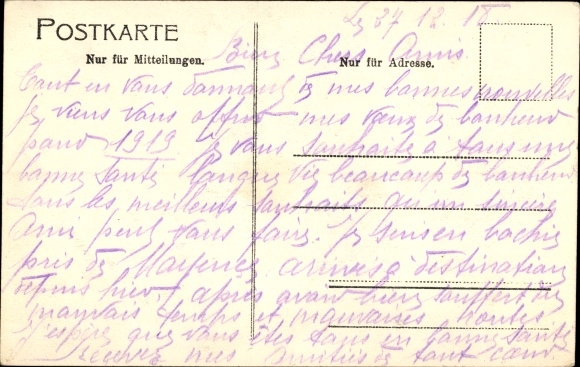 Le 27 12 18
POSTKARTE
Nur für Mitteilungen.
Nur für Adresse.
Bien Chers Amis.
Tout en vous donnant de mes bonnes nouvelles
Je viens vous offrir mes vœux de bonheur
pour 1919 Je vous souhaite à tous une
bonne santé longue vie beaucoup de bonheur
tous les meilleurs souhaits qu'un sincère
Ami peut vous faire. Je suis en
près de Mayence arrivés à destination
depuis hier, après avoir bien souffert du
mauvais temps et mauvaises routes
J'espère que vous êtes tous en bonne santé
Recevez mes amitiés de tout cœur.